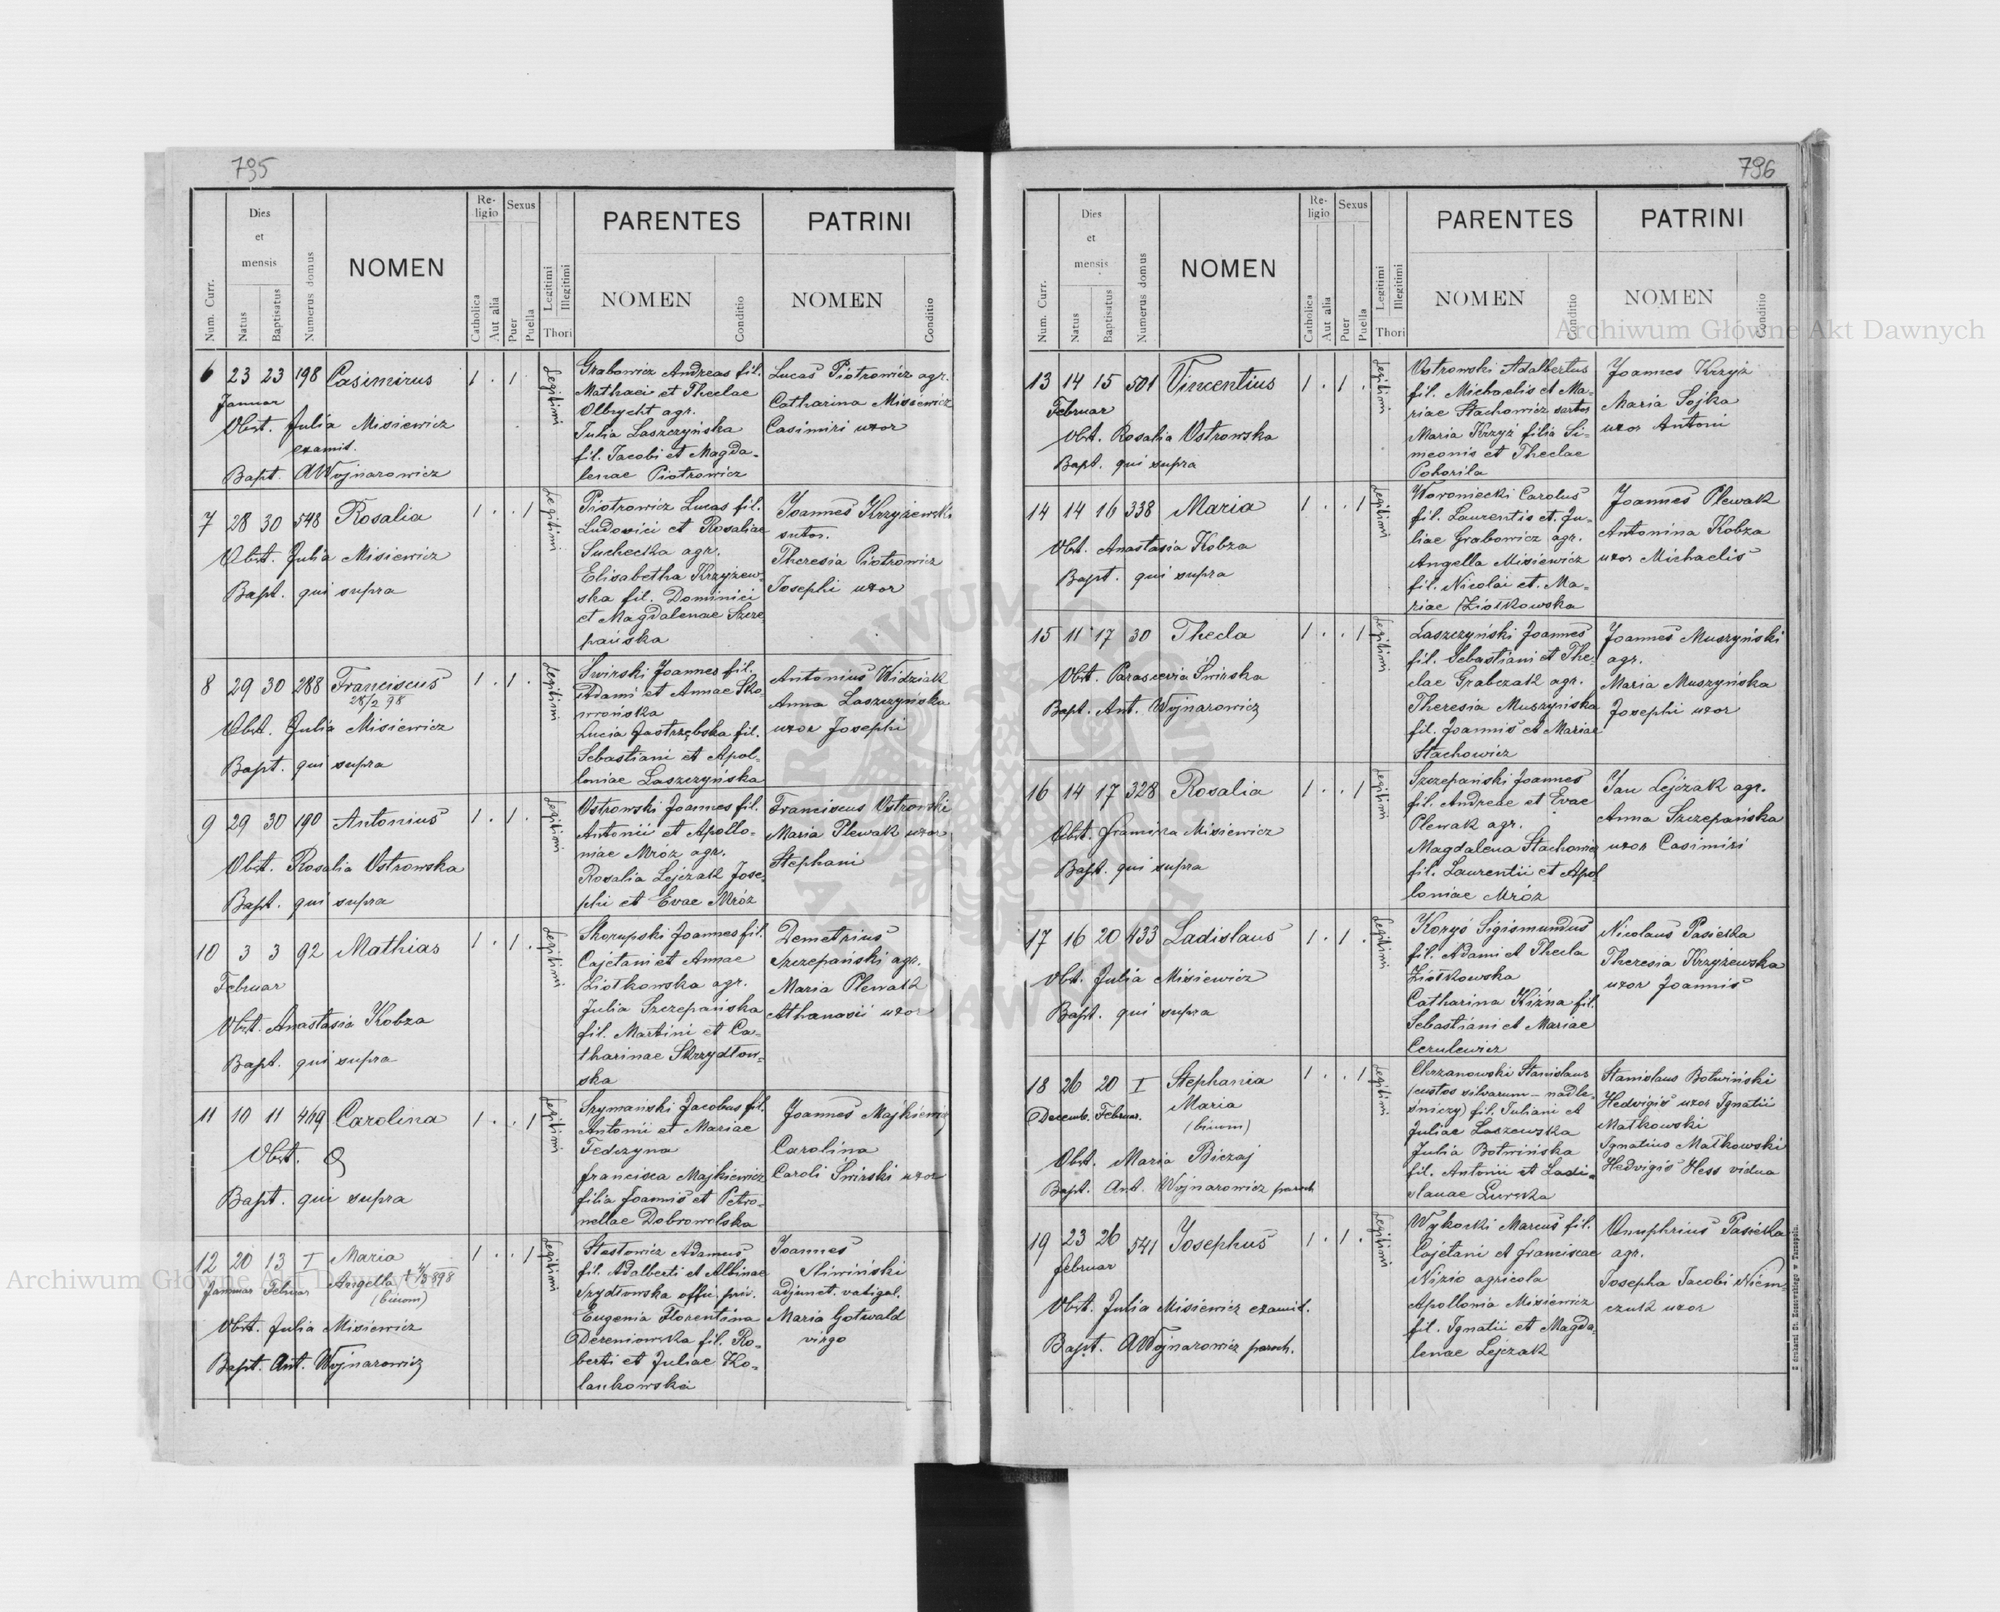 795
Num. Curr.
Dies
et
mensis
Natus
Baptisatus
Numerus domus
NOMEN
Re-
ligio
Catholica
Aut alia
Sexus
Puer
Puella
Legitimi
Illegitimi
Thori
PARENTES
NOMEN
Conditio
PATRINI
NOMEN
Conditio
6 23 23 198 Casimirus 1 . 1
Januar
Obst. Julia Misiewicz
examit.
Bapt. AWojnarowicz
Legitimi
Grabowicz Andreas fil.
Mathaei et Theclae
Olbrycht agr.
Julia Laszczyńska
fil. Jacobi et Magda-
lenae Piotrowicz
Lucas Piotrowicz agr.
Catharina Misiewicz
Casimiri uxor
7 28 30 548 Rosalia 1 . . 1
Obst. Julia Misiewicz
Bapt. qui supra
Legitimi
Piotrowicz Lucas fil.
Ludovici et Rosaliae
Suchecka agr.
Elisabetha Krzyżew-
ska fil. Dominici
et Magdalenae Szcze
pańska
Joannes Krzyżewski
sutor.
Theresia Piotrowicz
Josephi uxor
8 29 30 288 Franciscus 1 . 1 .
28/2 98
Obst. Julia Misiewicz
Bapt. qui supra
Legitimi
Swirski Joannes fil.
Adami et Annae Sko
wrońska
Lucia Jastrzębska fil.
Sebastiani et Apol-
loniae Laszczyńska
Antonius Widziak
Anna Laszczyńska
uxor Josephi
9 29 30 190 Antonius 1 . 1 .
Obst. Rosalia Ostrowska
Bapt. qui supra
Legitimi
Ostrowski Joannes fil.
Antonii et Apollo-
niae Mróz agr.
Rosalia Lejczak Jose-
phi et Evae Mróz
Franciscus Ostrowski
Maria Plewak uxor
Stephani
10 3 3 92 Mathias 1 . 1 .
Februar
Obst. Anastasia Kobza
Bapt. qui supra
Legitimi
Skorupski Joannes fil.
Cajetani et Annae
Ziotkowska agr.
Julia Szczepańska
fil. Martini et Ca-
tharinae Skrzydłow-
ska
Demetrius
Szczepański agr.
Maria Plewak
Athanasii uxor
11 10 11 469 Carolina 1 . . 1
Obst.
Bapt. qui supra
Legitimi
Szymański Jacobus fil.
Antonii et Mariae
Fedczyna
francisca Majkiewicz
filia Joannis et Petro-
nellae Dobrowolska
Joannes Majkiewicz
Carolina
Caroli Świrski uxor
12 20 13 I Maria 1 . . 1
Januar Februar Angella
(binom)
Obst. Julia Misiewicz
Bapt. Ant. Wojnarowicz
Legitimi
Stestowicz Adamus
fil. Adalberti et Albinae
Szydłowska offic. priv.
Eugenia Florentina
Dereniowska fil. Ro-
berti et Juliae Ko-
lankowska
Joannes
Śliwiński
adjunct. vatigal.
Maria Gotwald
virgo
796
Num. Curr.
Dies
et
mensis
Natus
Baptisatus
Numerus domus
NOMEN
Re-
ligio
Catholica
Aut alia
Sexus
Puer
Puella
Legitimi
Illegitimi
Thori
PARENTES
NOMEN
Conditio
PATRINI
NOMEN
Conditio
13 14 15 501 Vincentius 1 . 1 .
Februar
Obst. Rosalia Ostrowska
Bapt. qui supra
Legitimi
Ostrowski Adalbertus
fil. Michaelis et Ma-
riae Stachowicz sartor
Maria Krzyż filia Si-
meonis et Theclae
Pohoriła
Joannes Krzyż
Maria Sojka
uxor Antoni
14 14 16 338 Maria 1 . . 1
Obst. Anastasia Kobza
Bapt. qui supra
Legitimi
Woroniecki Carolus
fil. Laurentis et Ju-
liae Grabowicz agr.
Angella Misiewicz
fil. Nicolai et Ma-
riae Ziołkowska
Joannes Plewak
Antonina Kobza
uxor Michaelis
15 11 17 30 Thecla 1 . . 1
Obst. Parascevia Świrska
Bapt. Ant. Wojnarowicz
Legitimi
Laszczyński Joannes
fil. Sebastiani et The-
clae Grabczak agr.
Theresia Muszyńska
fil. Joannis et Mariae
Stachowicz
Joannes Muszyński
agr.
Maria Muszyńska
Josephi uxor
16 14 17 328 Rosalia 1 . . 1
Obst. franciska Misiewicz
Bapt. qui supra
Legitimi
Szczepański Joannes
fil. Andreae et Evae
Plewak agr.
Magdalena Stachowic
fil. Laurentii et Apol
loniae Mróz
Jan Lejczak agr.
Anna Szczepańska
uxor Casimiri
17 16 20 433 Ladislaus 1 . 1 .
Obst. Julia Misiewicz
Bapt. qui supra
Legitimi
Koryś Sigismundus
fil. Adami et Thecla
Ziołkowska
Catharina Kiżna fil.
Sebastiani et Mariae
Cerulewicz
Nicolaus Pasieka
Theresia Krzyżewska
uxor Joannis
18 26 20 I Stephania 1 . . 1
Decemb. Februar. Maria
(binom)
Obst. Maria Biczaj
Bapt. Ant. Wojnarowicz paroch
Legitimi
Chrzanowski Stanislaus
(custos silvarum - nadle-
śniczy) fil. Juliani et
Juliae Laszewska
Julia Botwińska
fil. Antonii et Ladi-
slauae
Stanislaus Botwiński
Hedvigis uxor Ignatii
Małkowski
Ignatius Małkowski
Hedvigis Hess vidua
19 23 26 541 Josephus 1 . 1 .
februar
Obst. Julia Misiewicz examit.
Bapt. AWojnarowicz paroch.
Legitimi
Wykocki Marcus fil.
Cajetani et franciscae
Nizio agricola
Apollonia Misiewicz
fil. Ignatii et Magda-
lenae Lejczak
Onuphrius Pasieka
agr.
Josepha Jacobi Niem-
czuk uxor
Archiwum Główne Akt Dawnych
Archiwum Główne Akt Dawnych